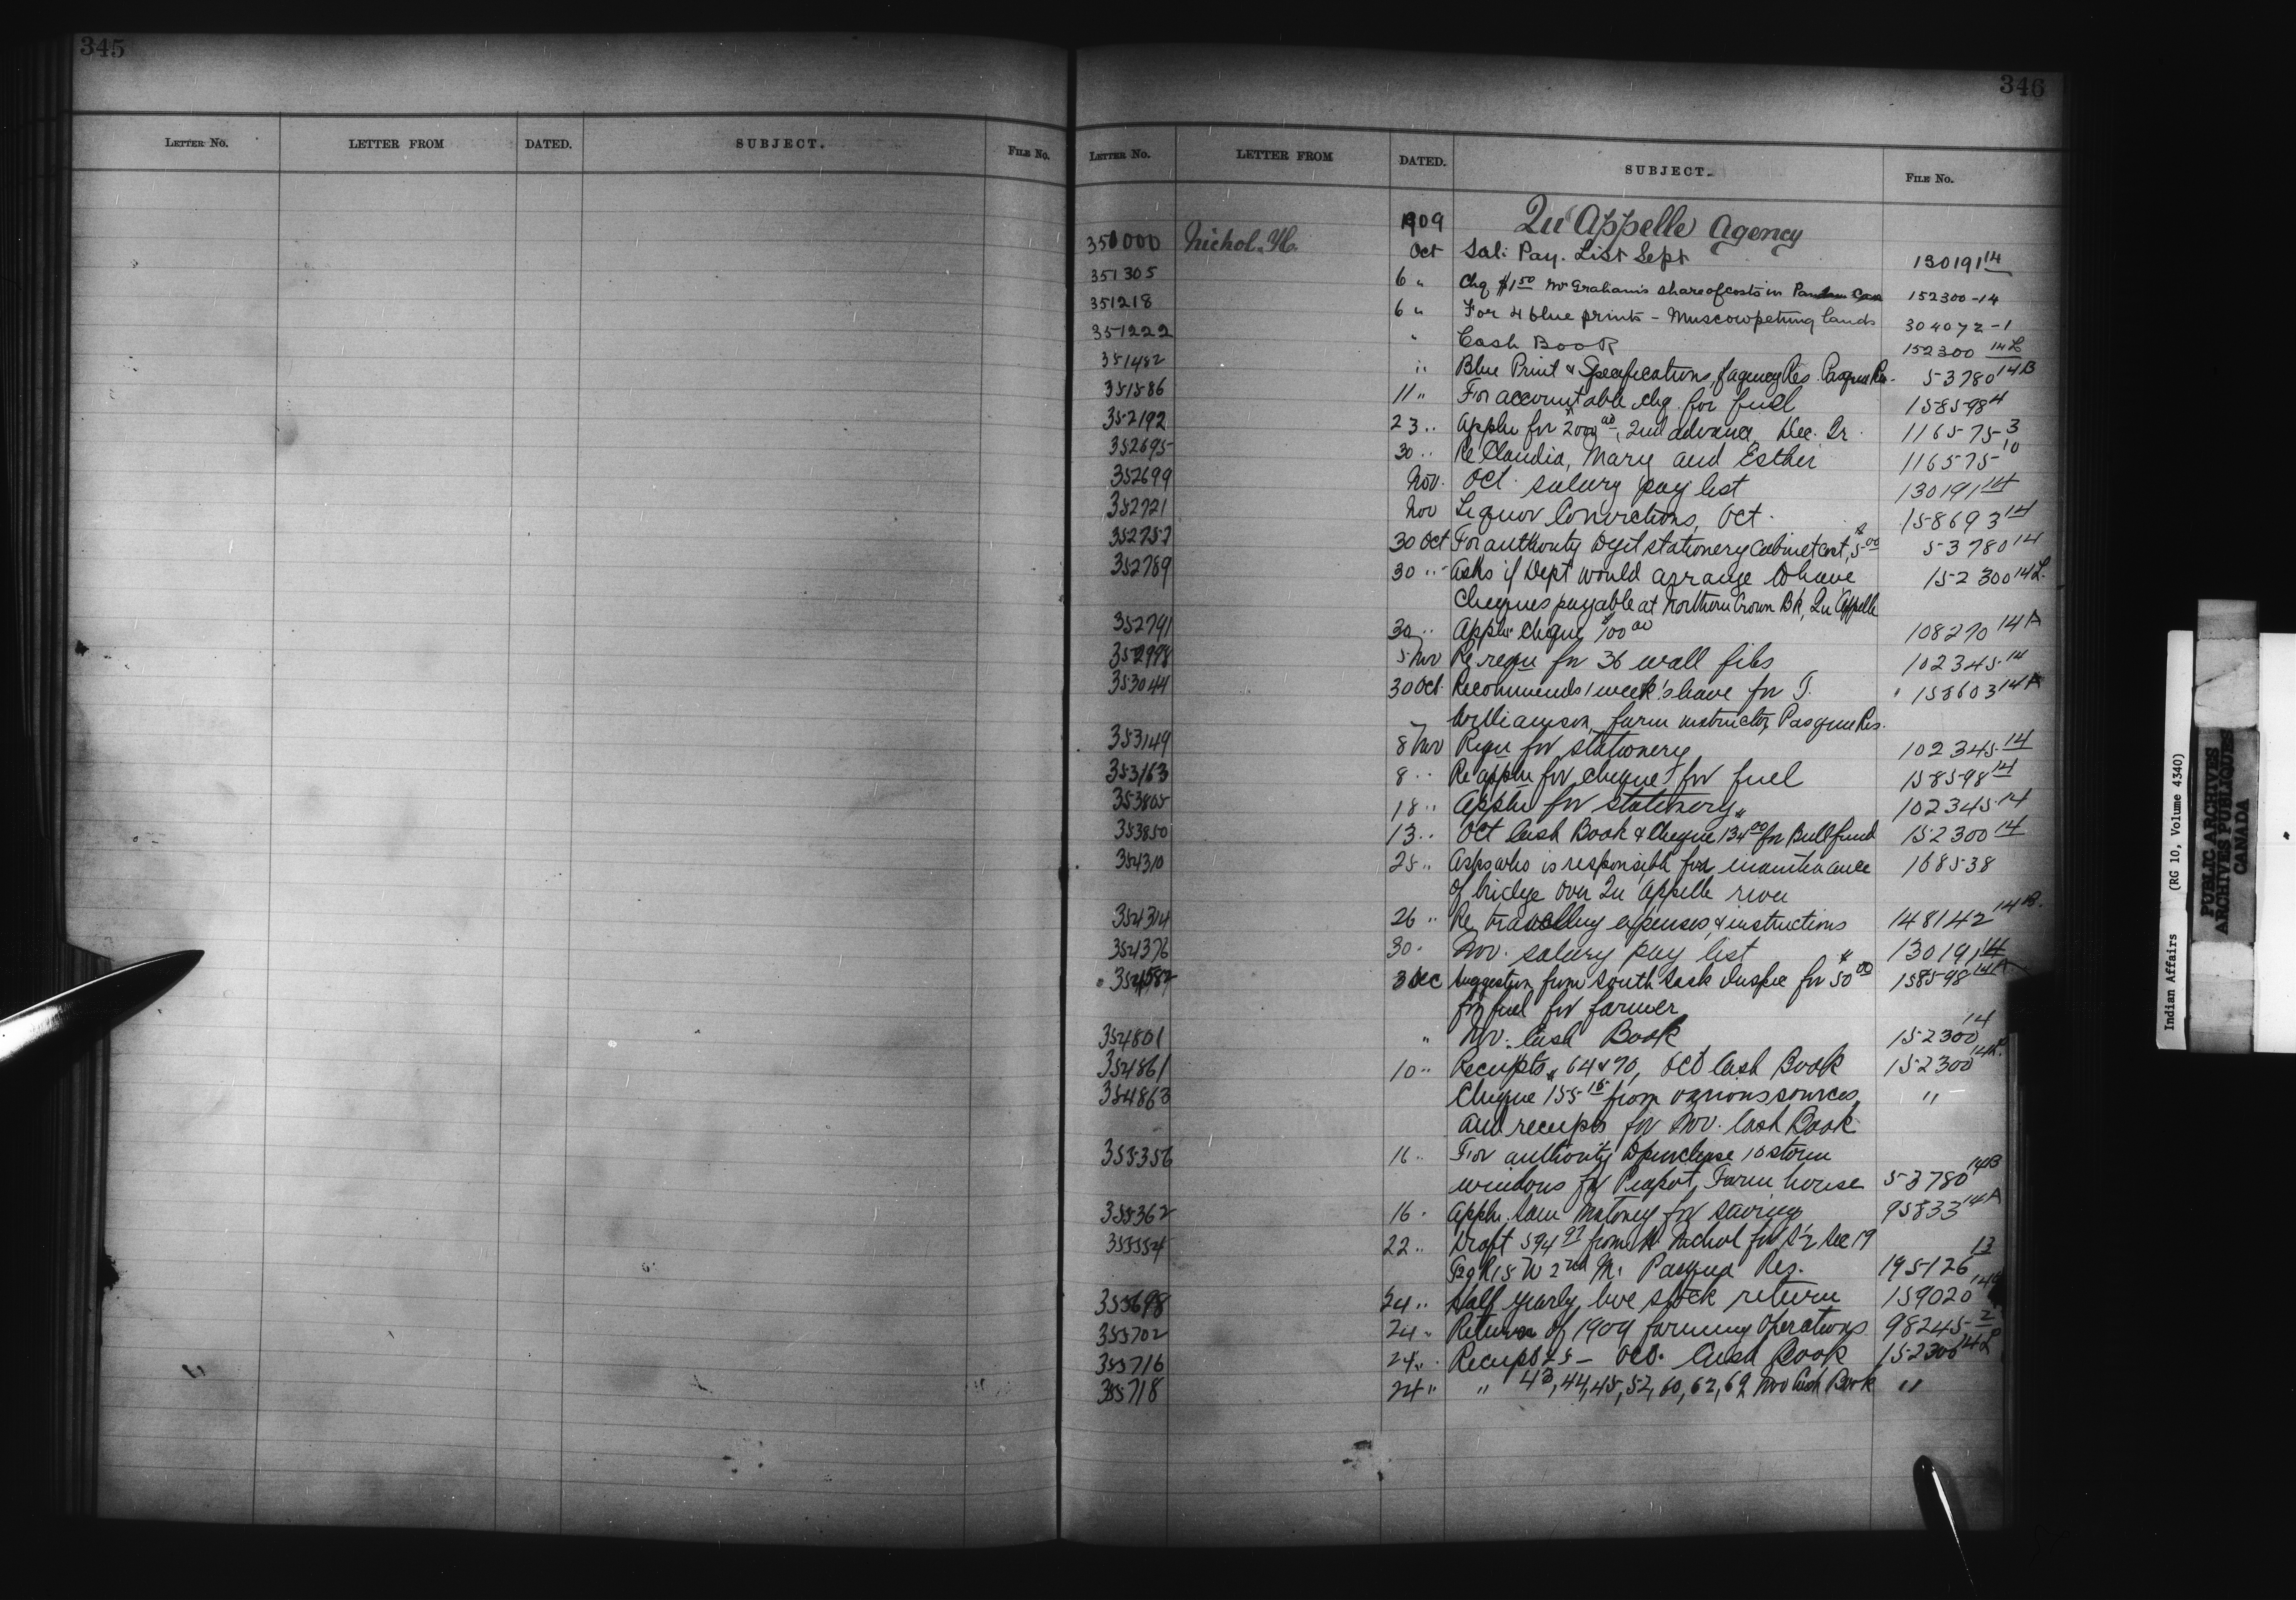 345
346
LETTER No. LETTER FROM DATED. SUBJECT. FILE No.
LETTER No. LETTER FROM DATED. SUBJECT. FILE No.
1909 Qu'Appelle Agency
350000 Nichol. H. Oct Sal: Pay. List Sept 130191 14
351305 6 " Chq $1 50 Mr Graham's share of costs in 152300-14
351218 6 " For 4 blue prints - Muscowpetung lands 304072-1
351222 " Cash Book 152300 14L
351482 " Blue Print & Specifications, Agency Res. Pasqua Res. 53780 14B
351586 11 " For accountable chq. for fuel 158598 4
352192 23 " Appln for 2000 00, 2nd advance, Dec. Qr. 116575 3
352695 30 " Re Claudia, Mary and Esther 116575 10
352699 Nov. Oct. salary pay list 130191 14
352721 Nov Liquor Convictions, Oct. 158693 14
352757 30 Oct For authority to get stationery Cabinet cost, $5 00 53780 14
352789 30 " Asks if Dept would arrange to have 152300 14L.
Cheques payable at Northern Crown Bk, Qu'Appelle
352791 30 " Appln cheque $100 00 108270 14A
352998 5 Nov Re requ for 36 wall files 102345 14
353044 30 Oct. Recommends 1 week's leave for T. 158603 14A
Williamson, farm instructor, Pasqua Res.
353149 8 Nov Requ for stationery 102345 14
353163 8 " Re appln for cheque for fuel 158598 14
353805 18 " Appln for stationery 102345 14
353850 13 " Oct Cash Book & Cheque 134 00 for Bull fund 152300 14
354310 25 " Asks who is responsible for maintenance 168538
of bridge over Qu'Appelle river
354314 26 " Re travelling expenses & instructions 148142 14B.
354376 30 " Nov. salary pay list 130191 14
354582 3 Dec Suggestion from South Sask Inspec for $50 00 158598 14A
for fuel for farmer
354801 " Nov. Cash Book 152300 14
354861 10 " Receipts 64 & 70, Oct Cash Book 152300 14L.
354863 Cheque $155 15 from various sources, "
and receipts for Nov. Cash Book
355356 16 " For authority to purchase 10 storm
windows for Piapot, Farm house 53780 14B
355362 16 " Appln. Sam Matoney for 95833 14A
355554 22 " Draft 594 97 from H. Nichol for S½ Sec 19
R15 W 2nd M. Pasqua Res. 195126 13
355698 24 " Half yearly, live stock return 159020 14
355702 24 " Return of 1909 farming Operations 98245 2
355716 24 " Receipt 25 - Oct. Cash Book 152300 14L
355718 24 " " 43, 44, 45, 52, 60, 62, 69 Nov Cash Book "
Indian Affairs (RG 10, Volume 4340)
PUBLIC ARCHIVES
ARCHIVES PUBLIQUES
CANADA